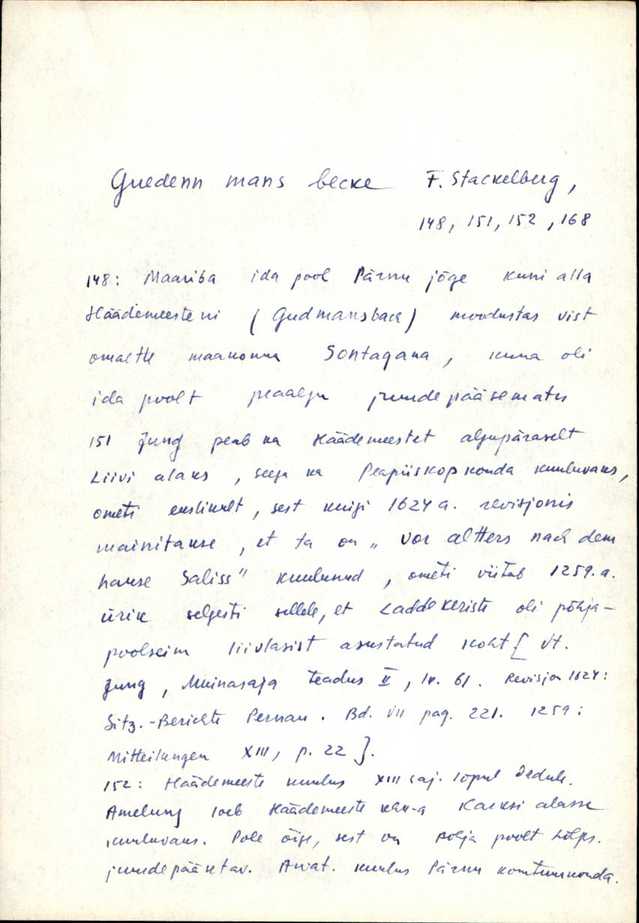 Guedenn mans becke F. Stackelberg,
148, 151, 152, 168
148: Maariba ida pool Pärnu jõge kuni alla
Häädemeesteni (Gudmansback) moodustas vist
omaette maakonna Sontagana, kuna oli
ida poolt peaaegu juurdepääsematu
151 Jung peab ka Häädemeestet algupäraselt
Liivi alaks, seega ka Peapiiskopkonda kuuluvaks,
ometi ekslikult, sest kuigi 1624 a. revisjonis
mainitakse, et ta on „vor altters nach dem
hause Saliss" kuulunud, ometi viitab 1259.a.
ürik selgesti sellele, et Laddekeriste oli põhja-
poolseim liivlasist asustatud koht [vt.
Jung, Muinasaja teadus II, lk. 61. Revision 1624:
Sitz.-Berichte Pernau. Bd. VII pag. 221. 1259:
Mitteilungen XIII, p. 22].
152: Häädemeeste kuulus XIII saj. lõpul
Amelung loeb Häädemeeste Karksi alasse
kuuluvaks. Pole õige, sest on poolt
juurdepääsetav. kuulus Pärnu komtuurkonda.